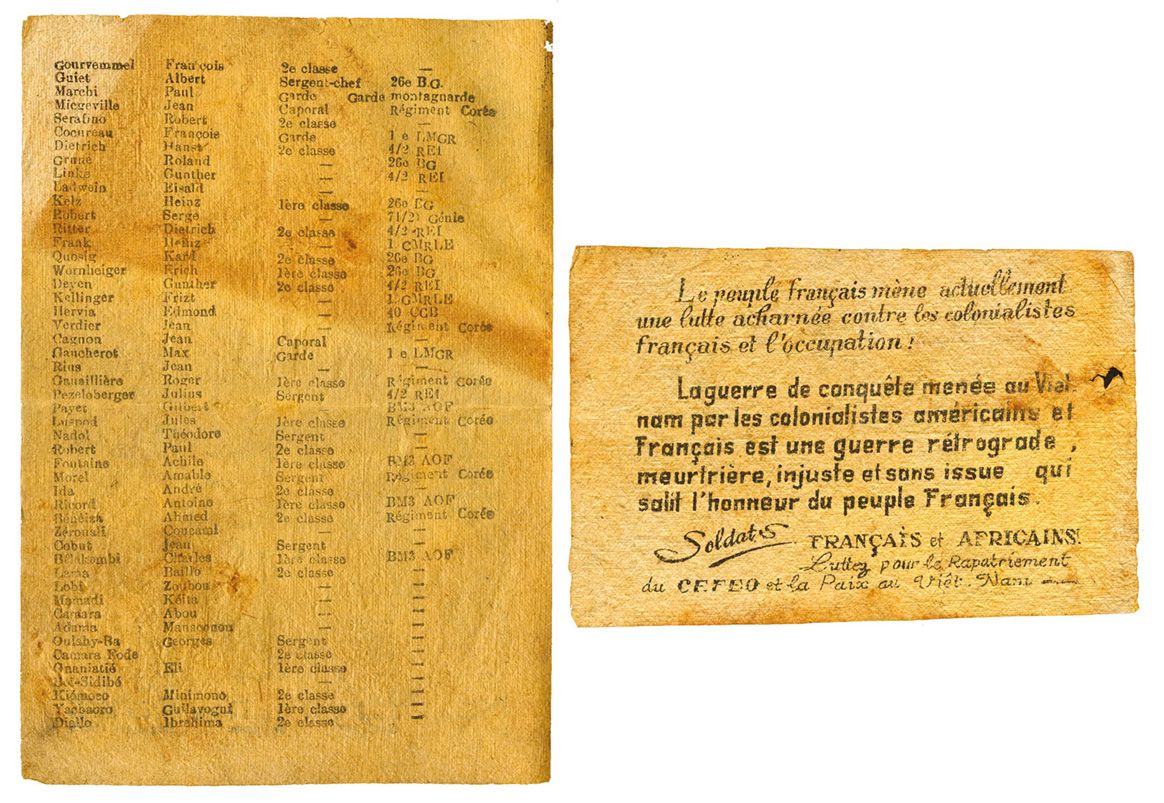 Gourvemmel François 2e classe —
Guiet Albert Sergent-chef 26e B.G.
Marchi Paul Garde Garde montagnarde
Micgeville Jean Caporal Régiment Corée
Serafino Robert 2e classe —
Cocureau François Garde 1 e LMGR
Dietrich Hanst 2e classe 4/2 REI
Grune Roland — 26e BG
Linke Gunther — 4/2 REI
Ladwein Eisald — —
Kelz Heinz 1ère classe 26e BG
Robert Serge — 71/2) Génie
Ritter Dietrich 2e classe 4/2 REI
Frank Heinz — 1 CMRLE
Quosig Karl 2e classe 26e BG
Wornheiger Erich 1ère classe 26e BG
Deyen Gunther 2e classe 4/2 REI
Kellinger Frizt — GMRLE
Hervia Edmond — 40 CCB
Verdier Jean — Régiment Corée
Cagnon Jean Caporal —
Gaucherot Max Garde 1 e LMGR
Rius Jean — —
Gauaillière Roger 1ère classe Régiment Corée
Pezeloberger Julius Sergent 4/2 REI
Payet Gilbert — BM3 AOF
Jules 1ère classe Régiment Corée
Nadol Théodore Sergent —
Robert Paul 2e classe —
Fontaine Achile 1ère classe BM3 AOF
Morel Amable Sergent Régiment Corée
Ida André 2e classe —
Ricord Antoine 1ère classe BM3 AOF
Ahmed 2e classe Régiment Corée
Zérouali — —
Cobut Jean Sergent —
Charles 1ère classe BM3 AOF
Lama Baillo 2e classe —
Lobi Zoubou — —
Mamadi Kéita — —
Camara Abou — —
Adama — —
Oulahy-Ba Georges Sergent —
Camara Fode 2e classe —
Gnaniatié Eli 1ère classe —
—
Kiémoco Minimono 2e classe —
Guilavogui 1ère classe —
Diallo Ibrahima 2e classe —
Le peuple français mène actuellement
une lutte acharnée contre les colonialistes
français et l'occupation !
La guerre de conquête menée au Viet
nam par les colonialistes américains et
Français est une guerre rétrograde ,
meurtrière, injuste et sans issue qui
salit l'honneur du peuple Français.
Soldats FRANÇAIS et AFRICAINS!
Luttez pour le Rapatriement
du CEFEO et la Paix au Viêt. Nam —